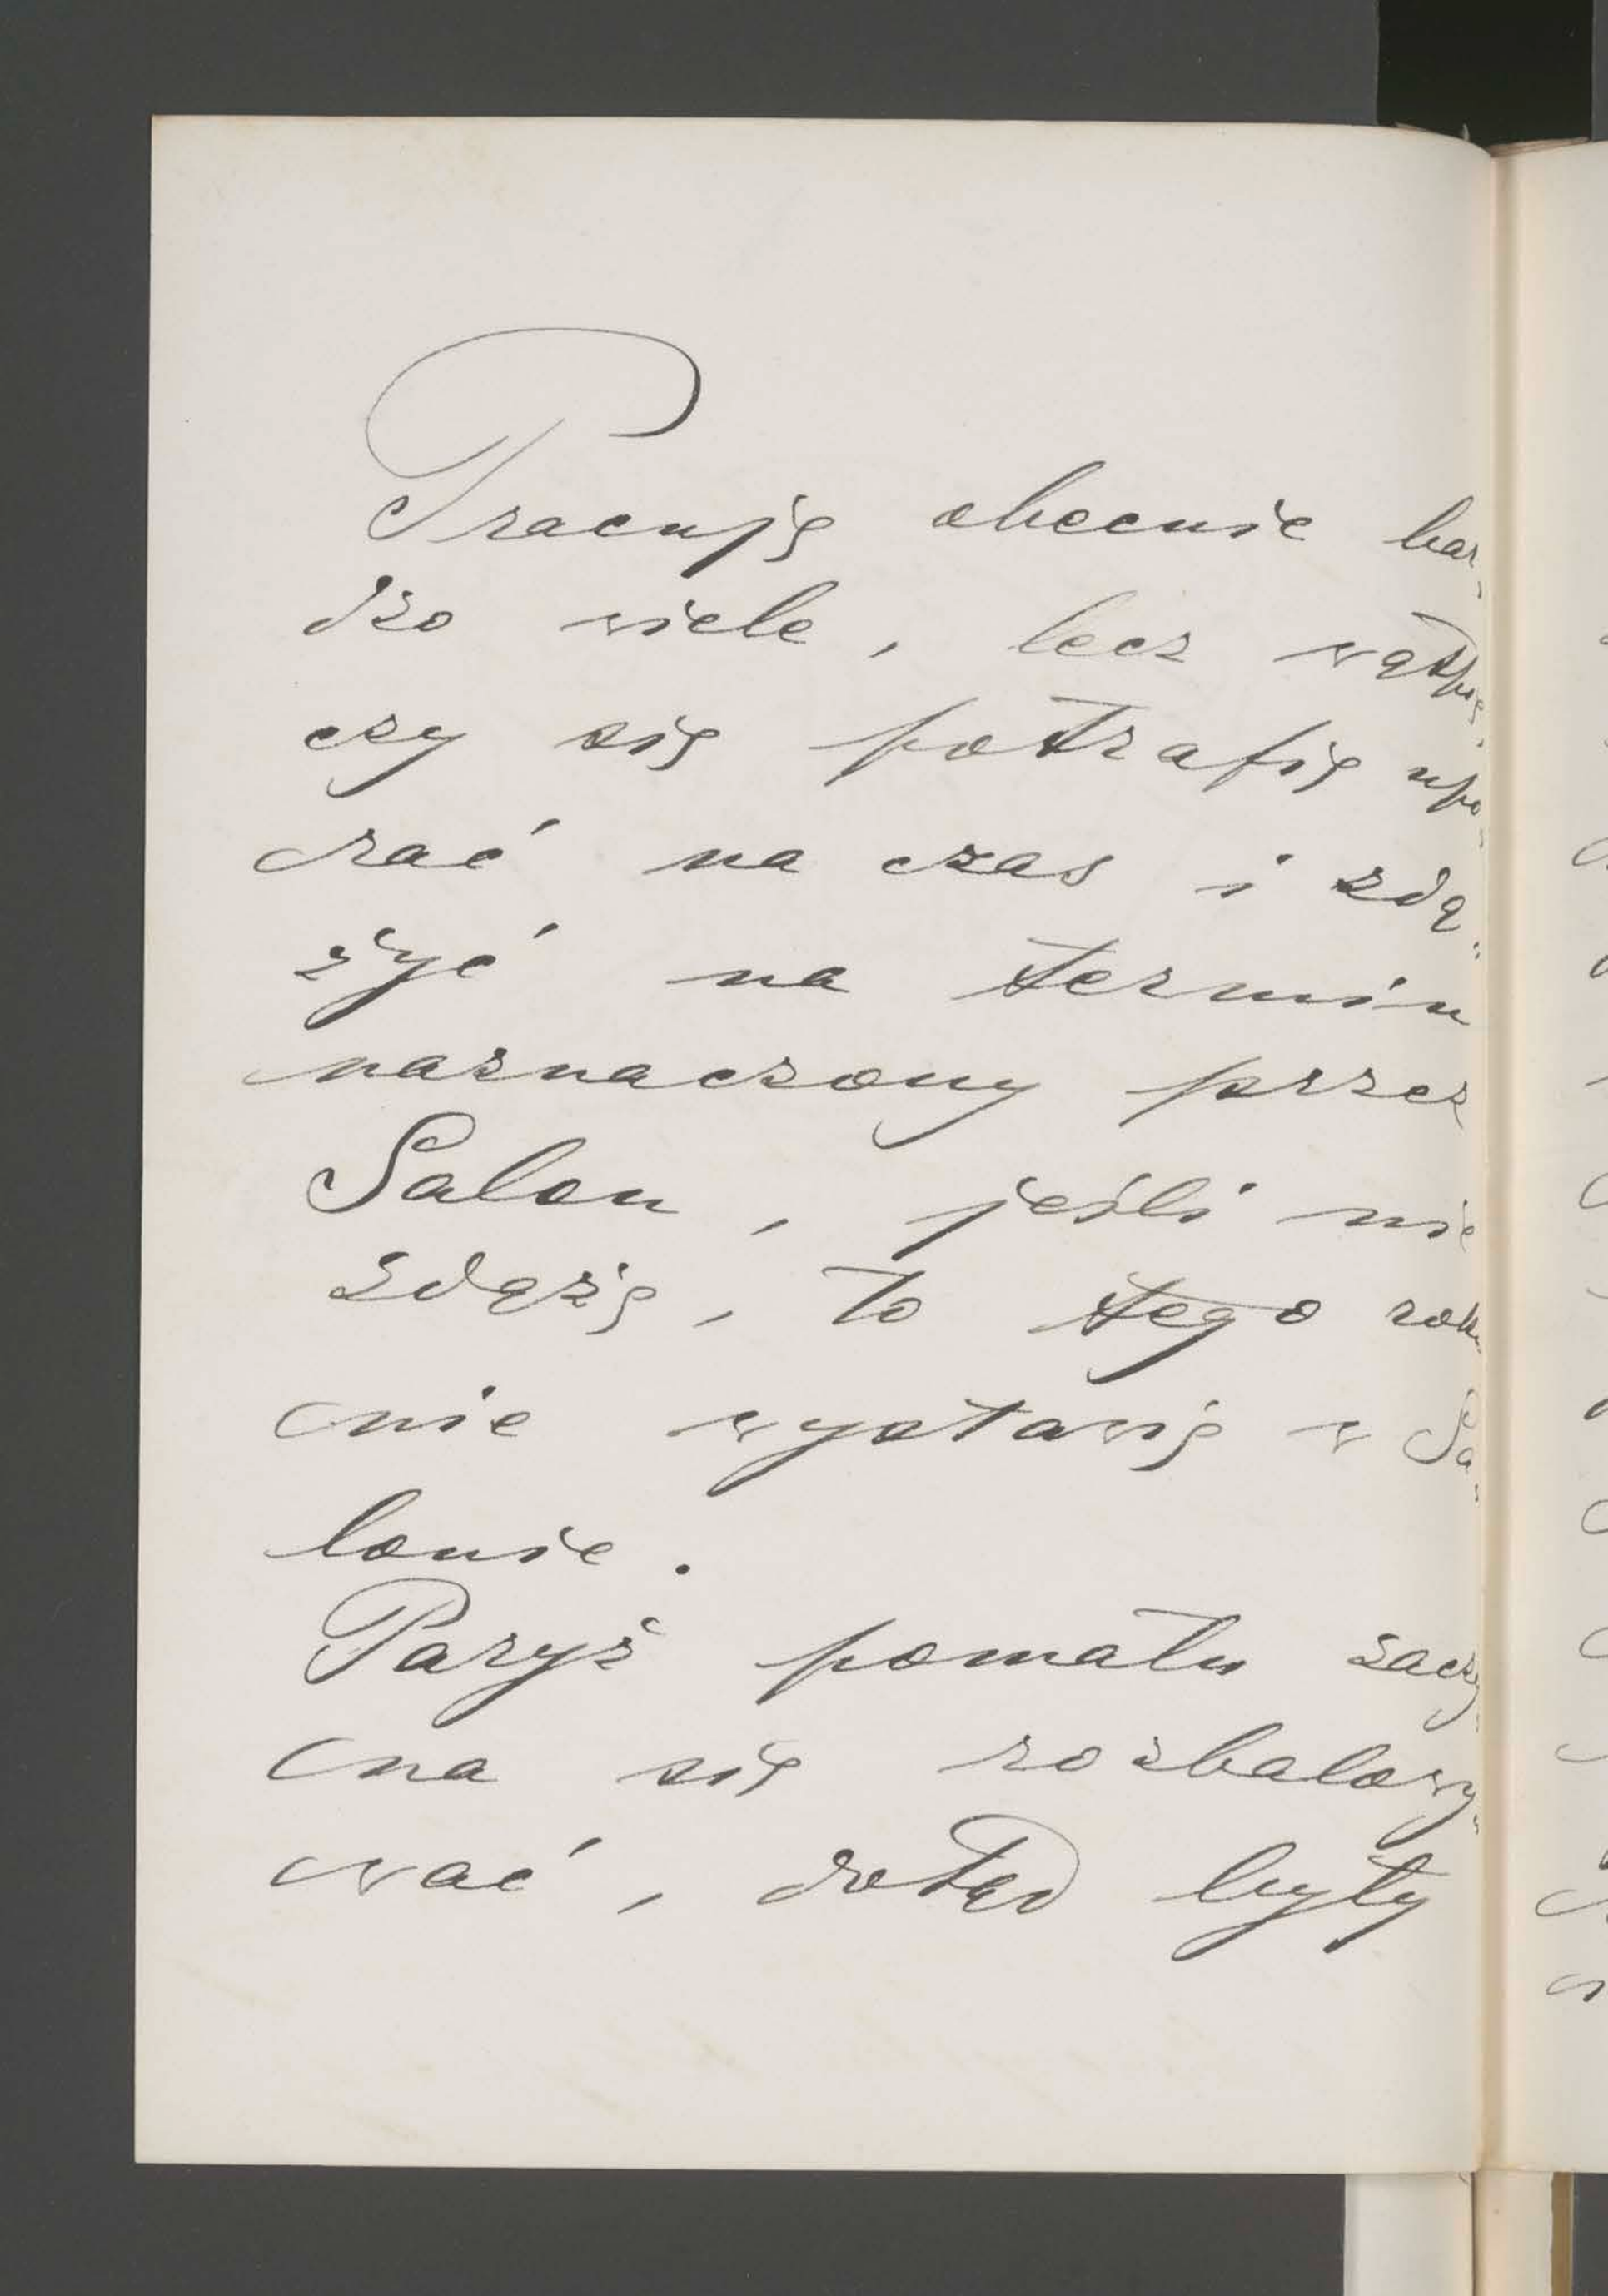 Pracuję obecnie bar-
dzo wiele, lecz wątpię,
czy się potrafię upo-
rać na czas i zdą-
żyć na termin
naznaczony przez
Salon, jeśli nie
zdążę, to tego roku
nie wystawię w Sa-
lonie.
Paryż pomału zaczy-
na się rozbalowy-
wać, dotąd były